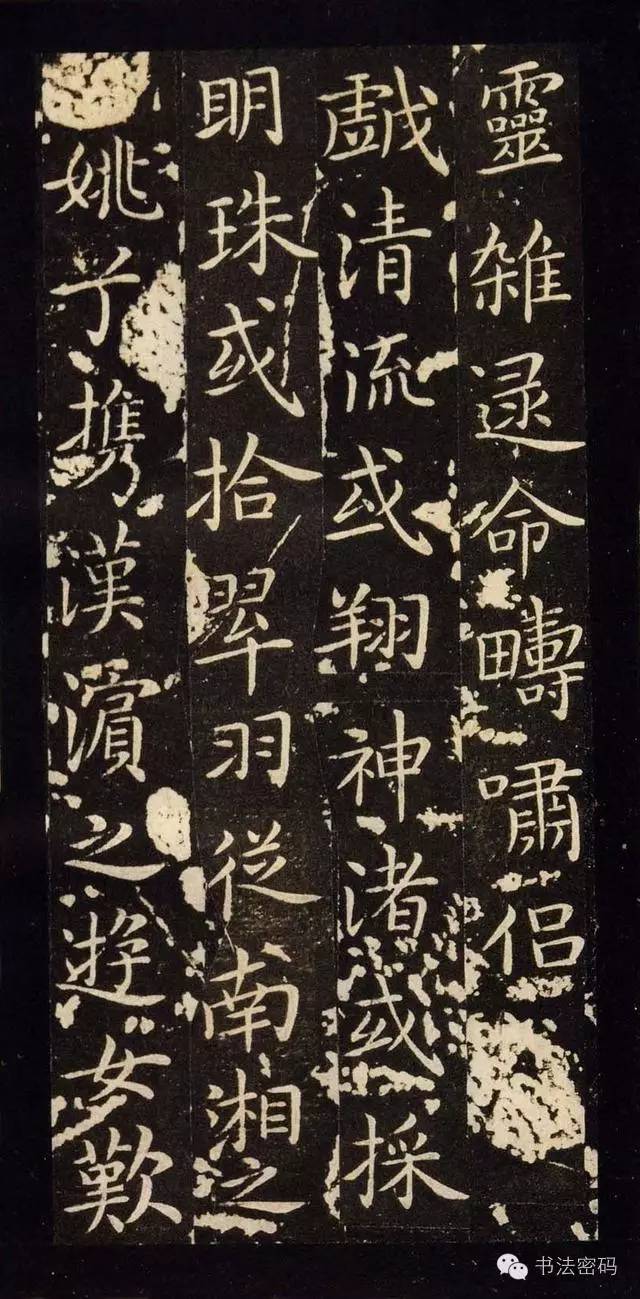 靈雜遝命疇嘯侶
戲清流或翔神渚或採
明珠或拾翠羽從南湘之
姚予攜漢濱之遊女歎
书法密码